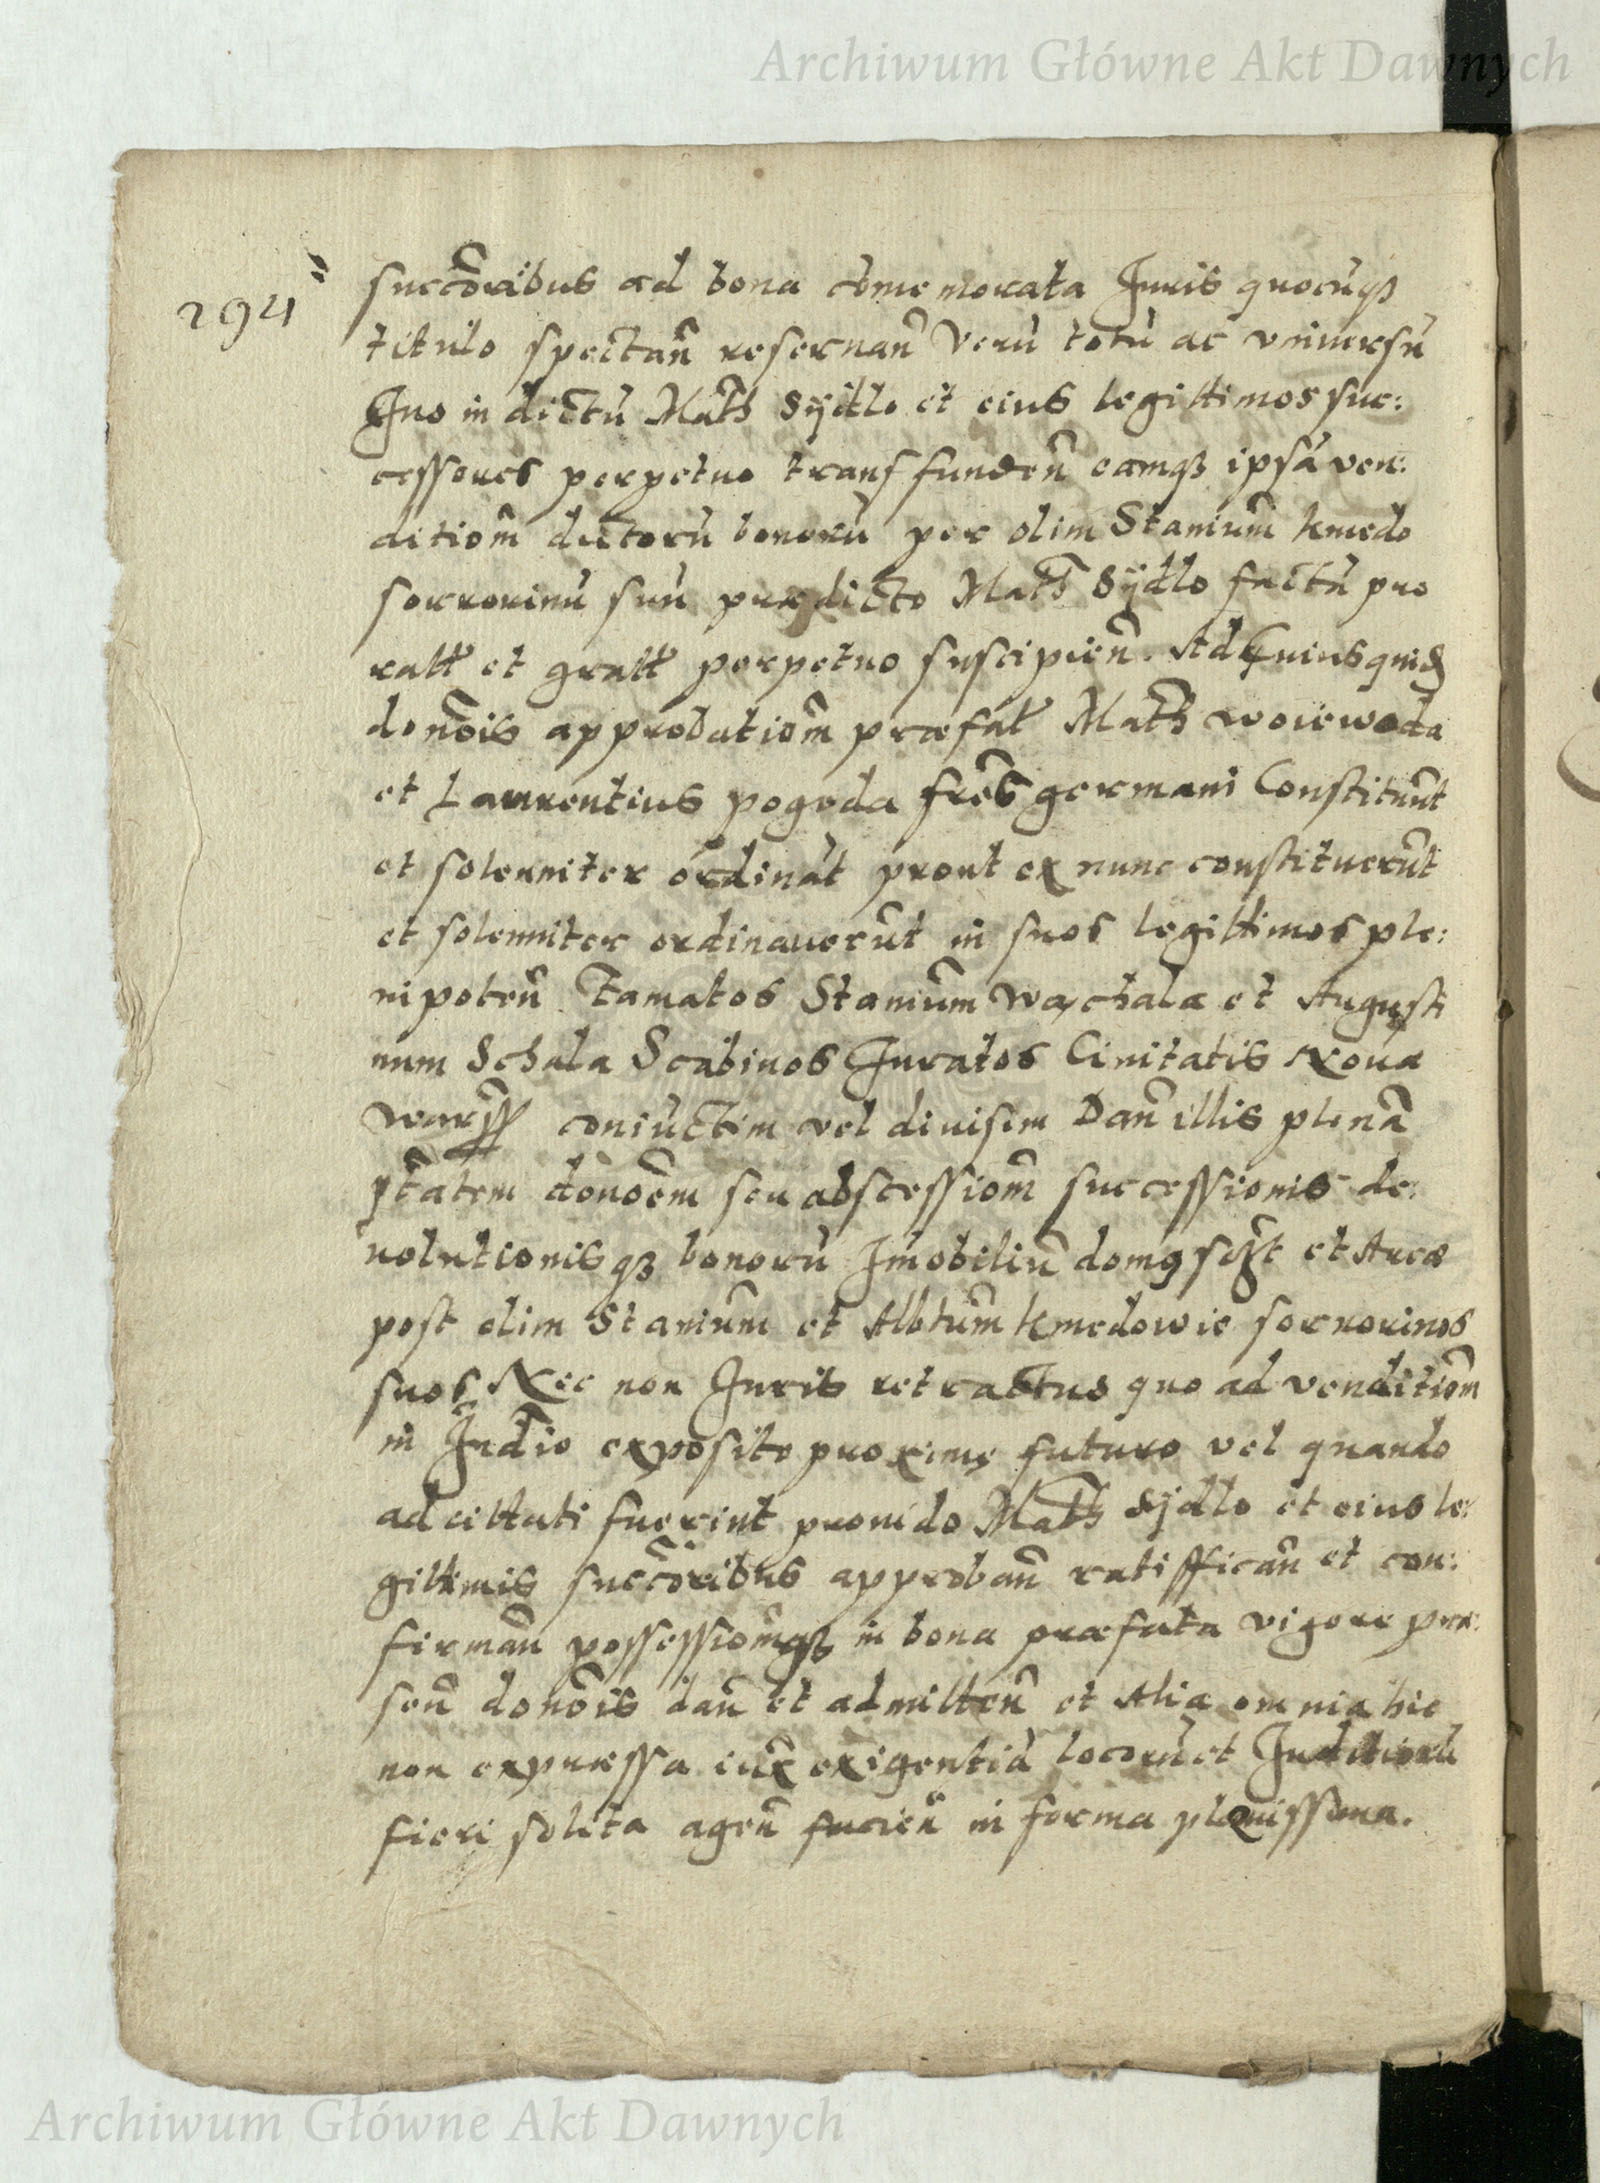 Archiwum Główne Akt Dawnych
294
succōribus ad bona cōmemorata Juris quocūqȝ
titulo spectañ reseruañ Verū totū ac vniuersū
Jus in dictū Math Sÿdlo et eius legittimos suc:
cessores perpetuo transfundeñ eamqȝ ipsā ven:
ditiom̄ dictorū bonorū per olim Stanium̄ kmedo
sororinū suū prædicto Math Sÿdlo factū pro
ratt et gratt perpetuo suscipień. Ad Cuiusquid
donōis approbatiom̄ præfat Math woiewoda
et Laurentius pogoda frēs germani Constituūt
et solenniter ordināt prout ex nunc constituerūt
et solenniter ordinauerūt in suos legittimos ple:
nipoteñ Famatos Stanium̄ Wachala et Augusti
num Schala Scabinos Juratos Ciuitatis Nouæ
Warss coniūctim vel diuisim Dañ illis plenā
ptātem donōem seu abscessiom̄ successionis de:
uolutionisqȝ bonorū Jm̄obiliū domq scȝt et Areæ
post olim Stanium̄ et Albtum̄ kmedowie sororinos
suos Nec non Juris retractus quo ad venditiom̄
in Judio exposito proxime futuro vel quando
ad cittati fuerint prouido Math Sÿdlo et eius le:
gittimis succōribus approbañ ratifficañ et con:
firmañ possessiom̄qȝ in bona præfata vigore præ:
señ donōis dañ et admitteñ et Alia omnia hic
non expressa iux exigentiā locorū et Juditiorū
fieri solita ageñ facień in forma plenissima.
Archiwum Główne Akt Dawnych